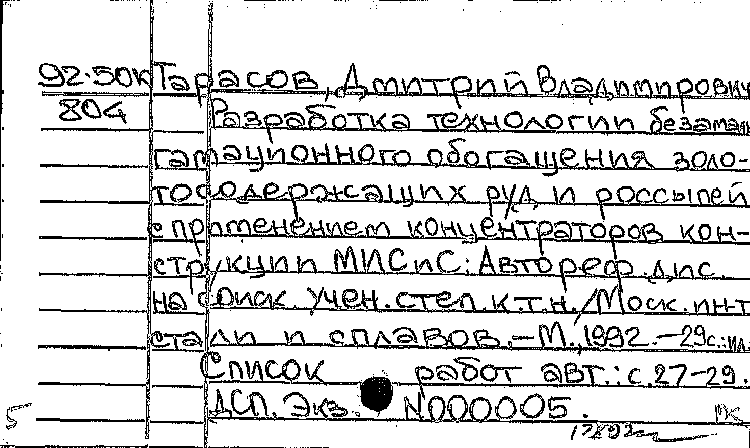 92-50К Тарасов, Дмитрий Владимирович
804 Разработка технологии безамаль-
гамационного обогащения золо-
тосодержащих руд и россыпей
с применением концентраторов кон-
струкции МИСиС: Автореф. дис.
на соиск. учен. степ. к.т.н. / Моск. ин-т
стали и сплавов. - М., 1992. - 29с.: ил.
Список работ авт.: с. 27-29.
ДСП. Экз. N000005.
5